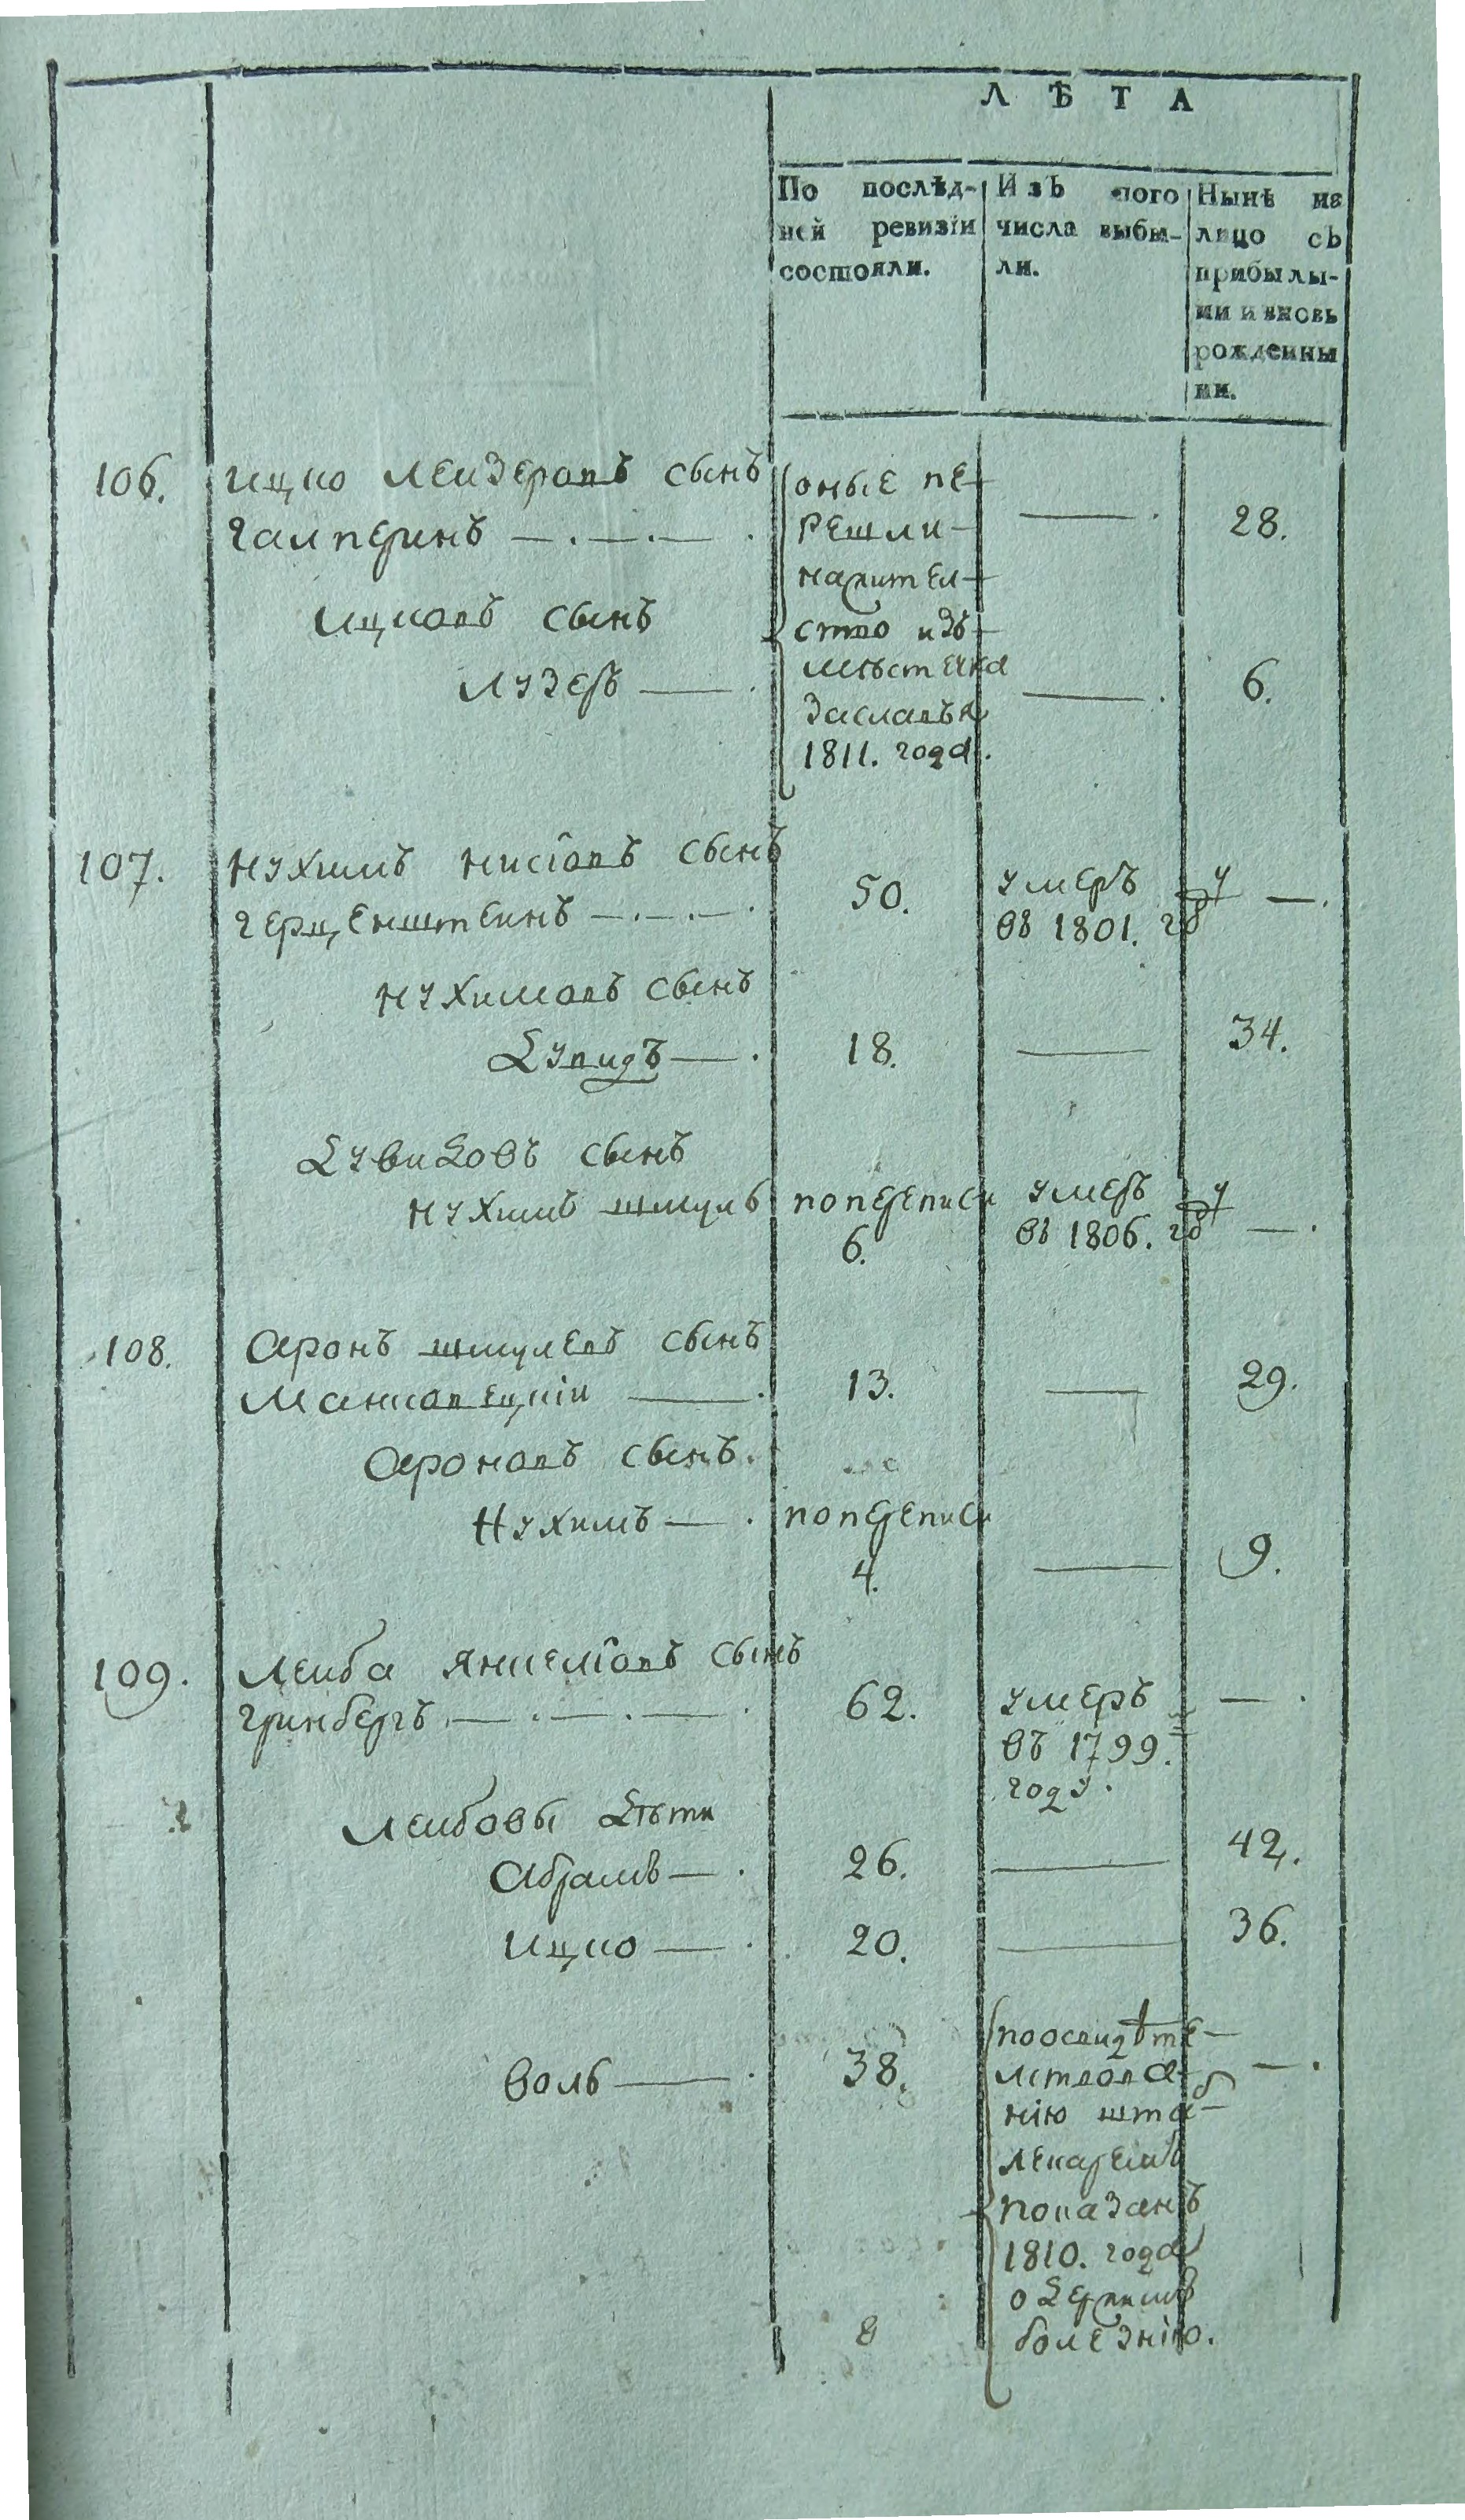 ЛѢТА
По послѣд-
ней ревизіи
состояли.
Изъ того
числа выбы-
ли.
Нынѣ на
лицо съ
прибылы-
ми и вновь
рожденны
ми.
106. Ицко Лейзеровъ сынъ
Галперинъ — . — . — .
оные пе-
решли —
нажител-
ство изъ
мѣстечка
Заславъя
1811. года.
— . 28.
Ицковъ сынъ
Лузеръ — . — . 6.
107. Нухимъ Нисіовъ сынъ
Герценштеинъ — . — . — . 50. умеръ
въ 1801. году — .
Нухимовъ сынъ
Дувидъ — . 18. — 34.
Дувидовъ сынъ
Нухимъ Шмуль поперепиcи
6. умеръ
въ 1806. году — .
108. Аронъ Шмулевъ сынъ
Манковецкіи — . 13. — 29.
Ароновъ сынъ.
Нухимъ — . поперепиcи
4. — 9.
109. Леиба Янкеліовъ сынъ
Гринбергъ . — . — . — . 62. умеръ
въ 1799.
году. — .
Леибовы дѣти
Абрамъ — . 26. — 42.
Ицко — . 20. — 36.
Воль — . 38.
поосвидѣте-
лствова-
нію штаб-
лекаремъ
показанъ
1810. года
одержимъ
болезнію.
— .